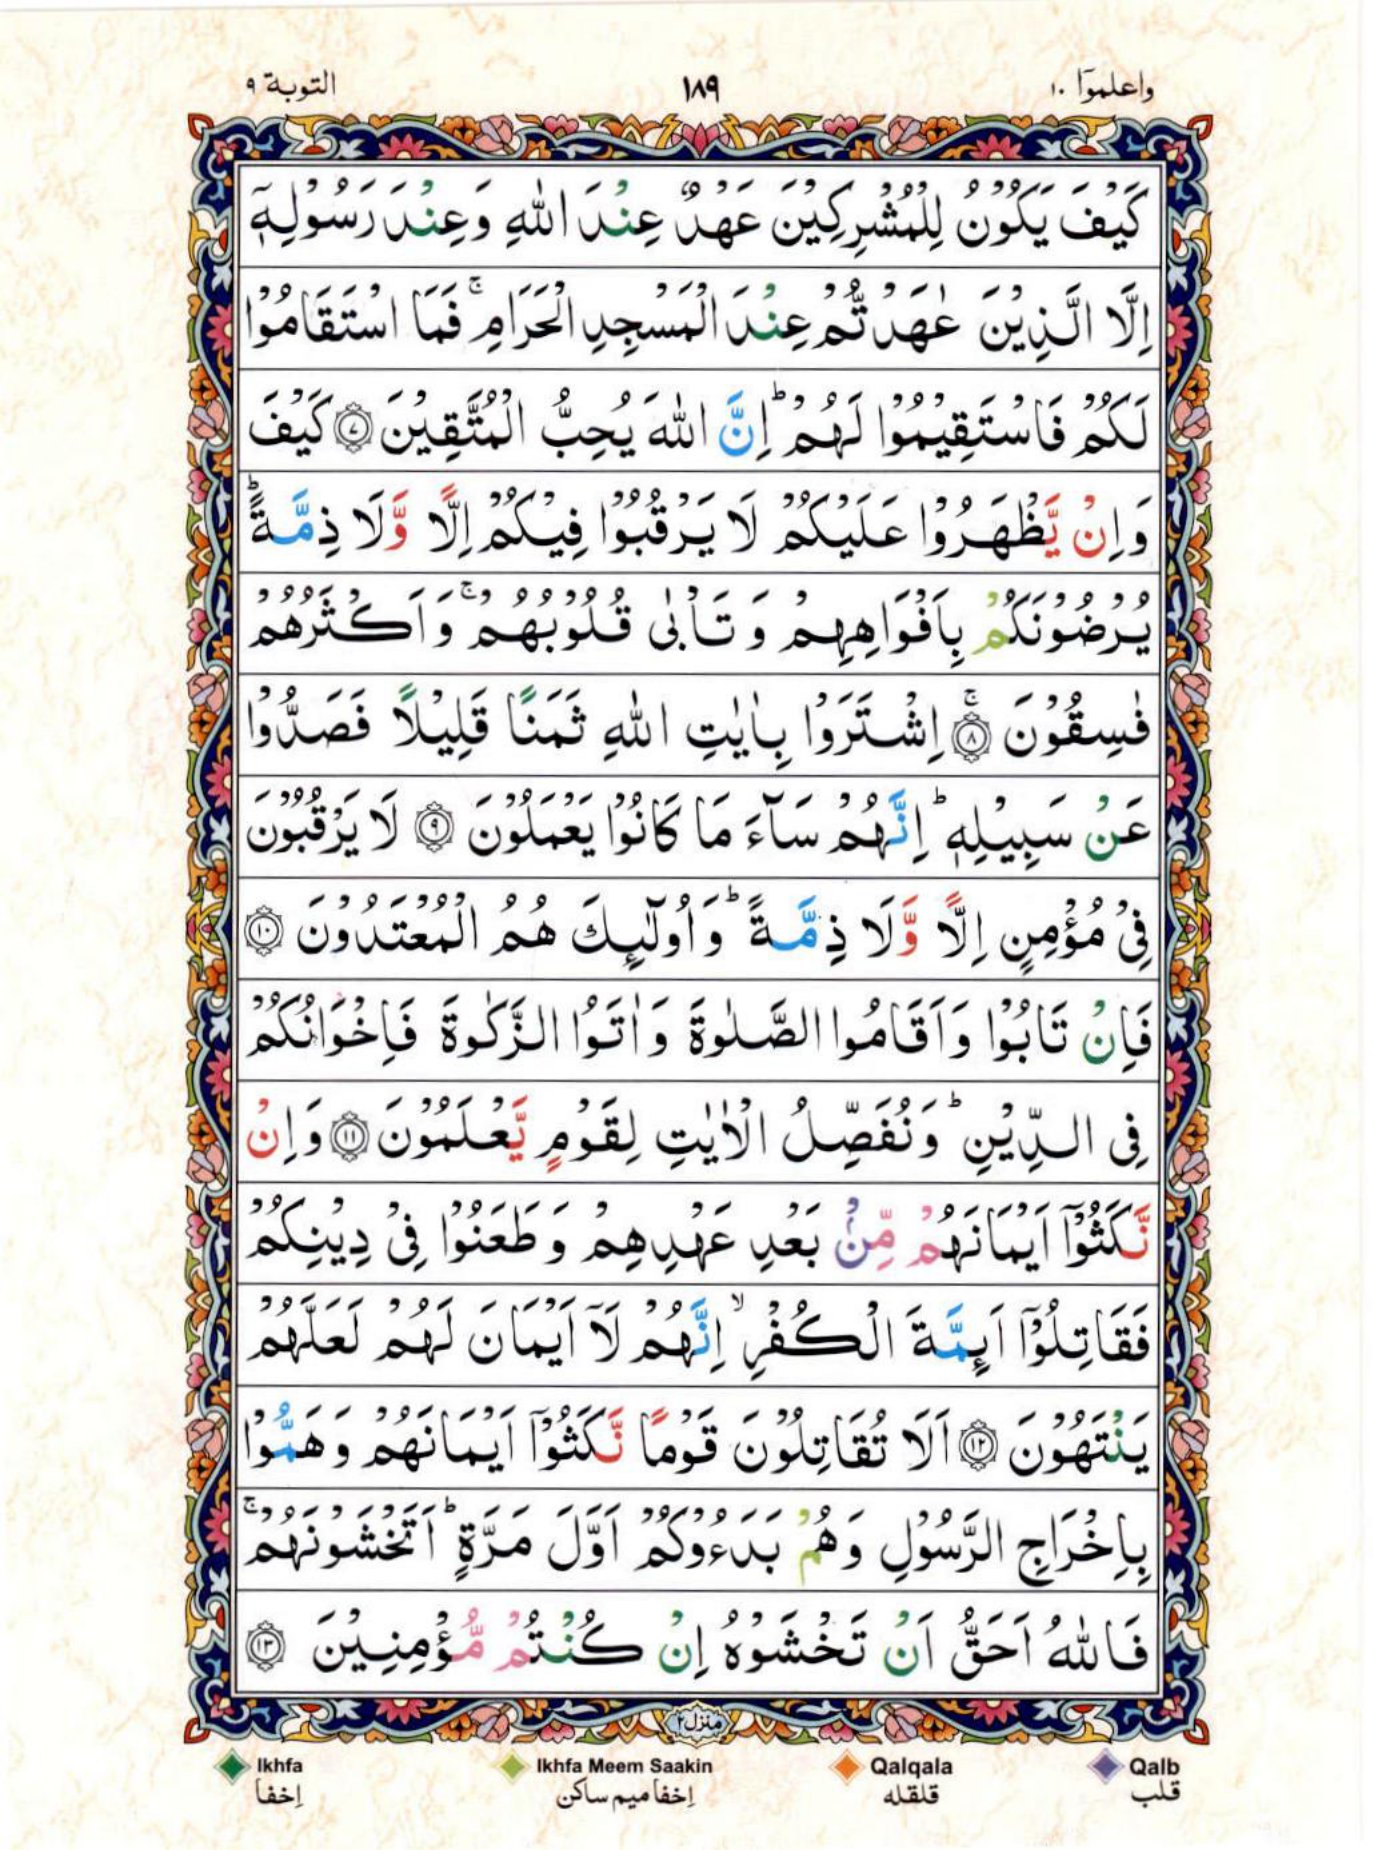 التوبة ٩
١٨٩
واعلموٓا ١٠
كَيْفَ يَكُوْنُ لِلْمُشْرِكِيْنَ عَهْدٌ عِنْدَ اللّٰهِ وَعِنْدَ رَسُوْلِهٖٓ
اِلَّا الَّذِيْنَ عٰهَدْتُّمْ عِنْدَ الْمَسْجِدِ الْحَرَامِ ۚ فَمَا اسْتَقَامُوْا
لَكُمْ فَاسْتَقِيْمُوْا لَهُمْ ؕ اِنَّ اللّٰهَ يُحِبُّ الْمُتَّقِيْنَ ۝٧ كَيْفَ
وَاِنْ يَّظْهَرُوْا عَلَيْكُمْ لَا يَرْقُبُوْا فِيْكُمْ اِلًّا وَّلَا ذِمَّةً ؕ
يُرْضُوْنَكُمْ بِاَفْوَاهِهِمْ وَتَاْبٰى قُلُوْبُهُمْ ۚ وَاَكْثَرُهُمْ
فٰسِقُوْنَ ۝٨ ۚ اِشْتَرَوْا بِاٰيٰتِ اللّٰهِ ثَمَنًا قَلِيْلًا فَصَدُّوْا
عَنْ سَبِيْلِهٖ ؕ اِنَّهُمْ سَآءَ مَا كَانُوْا يَعْمَلُوْنَ ۝٩ لَا يَرْقُبُوْنَ
فِيْ مُؤْمِنٍ اِلًّا وَّلَا ذِمَّةً ؕ وَاُولٰٓئِكَ هُمُ الْمُعْتَدُوْنَ ۝١٠
فَاِنْ تَابُوْا وَاَقَامُوا الصَّلٰوةَ وَاٰتَوُا الزَّكٰوةَ فَاِخْوَانُكُمْ
فِى الدِّيْنِ ؕ وَنُفَصِّلُ الْاٰيٰتِ لِقَوْمٍ يَّعْلَمُوْنَ ۝١١ وَاِنْ
نَّكَثُوْٓا اَيْمَانَهُمْ مِّنْۢ بَعْدِ عَهْدِهِمْ وَطَعَنُوْا فِيْ دِيْنِكُمْ
فَقَاتِلُوْٓا اَئِمَّةَ الْكُفْرِ ۙ اِنَّهُمْ لَآ اَيْمَانَ لَهُمْ لَعَلَّهُمْ
يَنْتَهُوْنَ ۝١٢ اَلَا تُقَاتِلُوْنَ قَوْمًا نَّكَثُوْٓا اَيْمَانَهُمْ وَهَمُّوْا
بِاِخْرَاجِ الرَّسُوْلِ وَهُمْ بَدَءُوْكُمْ اَوَّلَ مَرَّةٍ ؕ اَتَخْشَوْنَهُمْ ۚ
فَاللّٰهُ اَحَقُّ اَنْ تَخْشَوْهُ اِنْ كُنْتُمْ مُّؤْمِنِيْنَ ۝١٣
منزل ٢
Ikhfa Ikhfa Meem Saakin Qalqala Qalb
اِخفا اِخفا میم ساکن قلقله قلب